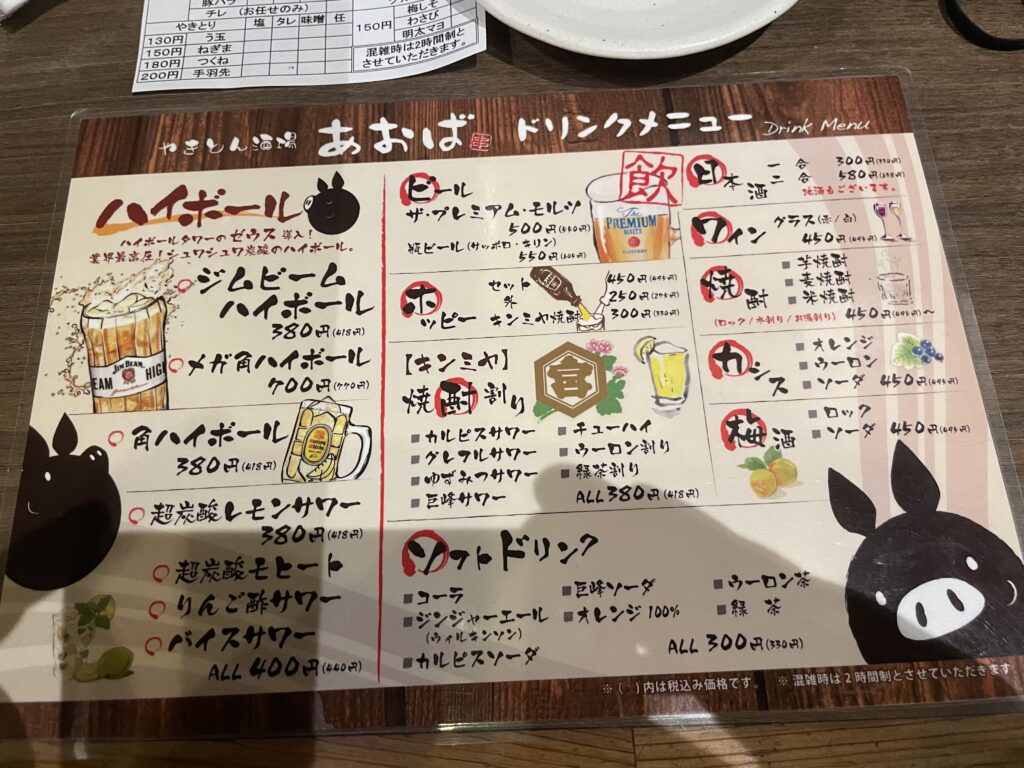 豚バラ
チレ (お任せのみ)
やきとり 塩 タレ 味噌 任
130円 う玉
150円 ねぎま
180円 つくね
200円 手羽先
150円
梅しそ
わさび
明太マヨ
混雑時は2時間制と
させていただきます。
やきとん酒場 あおば 串 ドリンクメニュー Drink Menu
ハイボール
ハイボールタワーのゼウス導入!
業界最高圧!シュワシュワ炭酸のハイボール。
ジムビーム
ハイボール
380円(418円)
メガ角ハイボール
700円(770)
JIM BEAM
EAM
HIGH
角ハイボール
380円(418円)
超炭酸レモンサワー
380円(418円)
超炭酸モヒート
りんご酢サワー
バイスサワー
ALL 400円(440円)
ビール
ザ・プレミアム・モルツ
500円(550円)
瓶ビール(サッポロ・キリン)
550円(605円)
飲
The
PREMIUM
MALT'S
ホッピー
セット 450円(495円)
外 250円(275円)
キンミヤ焼酎 300円(330円)
【キンミヤ】
焼酎割り
宮
カルピスサワー
グレフルサワー
ゆずみつサワー
巨峰サワー
チューハイ
ウーロン割り
緑茶割り
ALL 380円(418円)
日本酒
一合 300円(330円)
二合 580円(638円)
地酒もございます。
ワイン グラス(赤/白)
450円(495円)
焼酎
芋焼酎
麦焼酎
米焼酎
(ロック/水割り/お湯割り) 450円(495円)~
カシス
オレンジ
ウーロン
ソーダ 450円(495円)
梅酒
ロック
ソーダ 450円(495円)
ソフトドリンク
コーラ
ジンジャーエール
(ウィルキンソン)
カルピスソーダ
巨峰ソーダ
オレンジ100%
ウーロン茶
緑茶
ALL 300円(330円)
※( )内は税込み価格です。 ※混雑時は2時間制とさせていただきます。